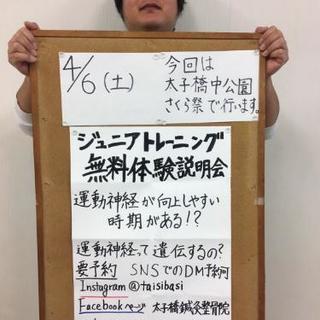 4/6(土)
今回は
太子橋中公園
さくら祭で行います。
ジュニアトレーニング
無料体験説明会
運動神経が向上しやすい
時期がある!?
運動神経って遺伝するの?
要予約 SNSでのDM予約可
Instagram@taisibasi
Facebookページ 太子橋鍼灸整骨院